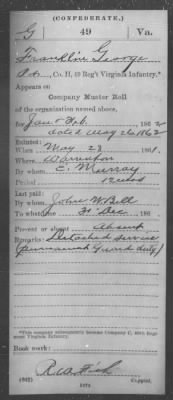 (CONFEDERATE.)
G 49 Va.
Franklin George
Co. H, 49 Reg't Virginia Infantry.*
Appears on
Company Muster Roll
of the organization named above,
for Jan & Feb, 1862
dated May 26, 1862
Enlisted:
When May 28, 1861.
Where Warrenton
By whom E. Murray
Period 12 mos
Last paid:
By whom John W. Bell
To what time 31 Dec, 186
Present or absent Absent
Remarks: Detached service
guard duty)
*This company subsequently became Company C, 49th Regiment Virginia Infantry.
Book mark:
(642)
Copyist.